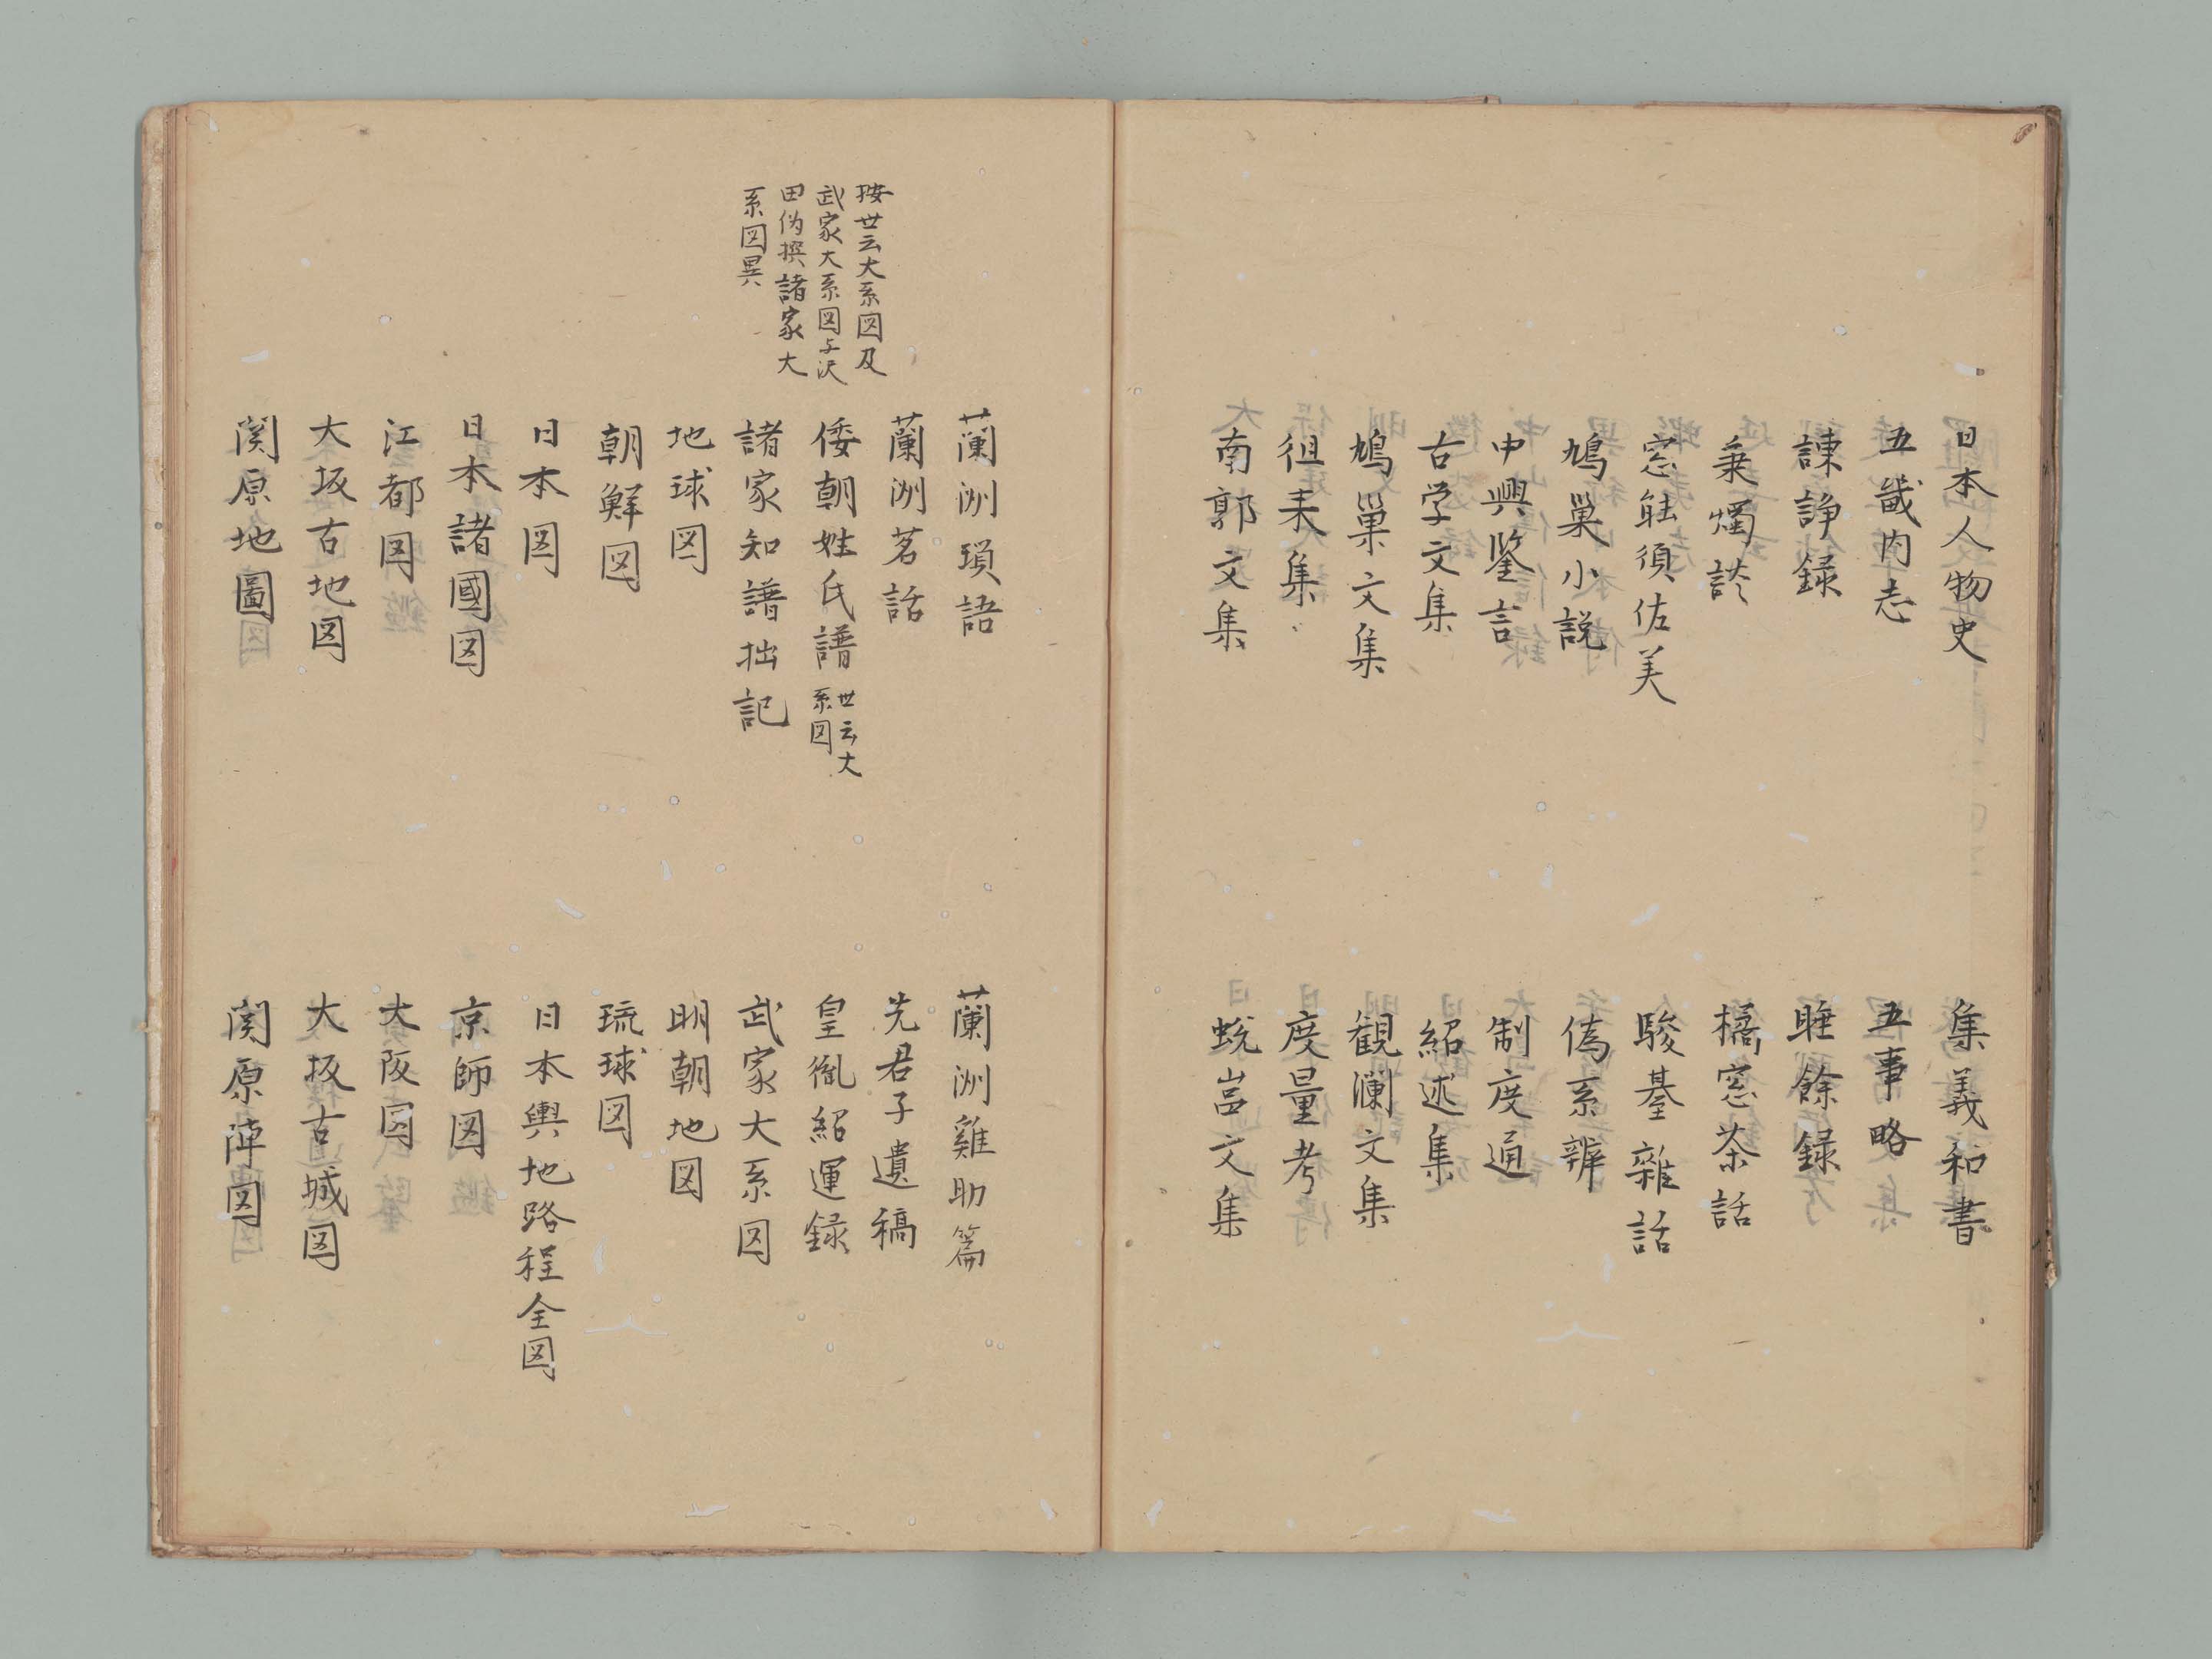 日本人物史
集義和書
五畿内志
五事略
諌諍録
睡餘録
秉燭談
橘窓茶話
窓能須佐美
駿基雜話
鳩巣小説
偽系辨
中興鑒言
制度通
古学文集
紹述集
鳩巣文集
観瀾文集
徂耒集
度量考
南郭文集
蛻嵓文集
按世云大系図及
武家大系図与沢
田偽撰諸家大
系図異
蘭洲瑣語
蘭洲雞肋篇
蘭洲茗話
先君子遺稿
倭朝姓氏譜 世云大系図
皇胤紹運録
諸家知譜拙記
武家大系図
地球図
明朝地図
朝鮮図
琉球図
日本図
日本輿地路程全図
日本諸國図
京師図
江都図
大阪図
大坂古地図
大坂古城図
関原地圖
関原陣図